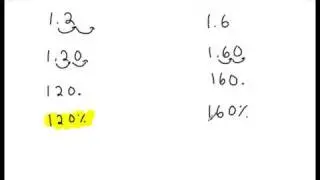 1.2 1.6
1.20 1.60
120. 160.
120% 160%